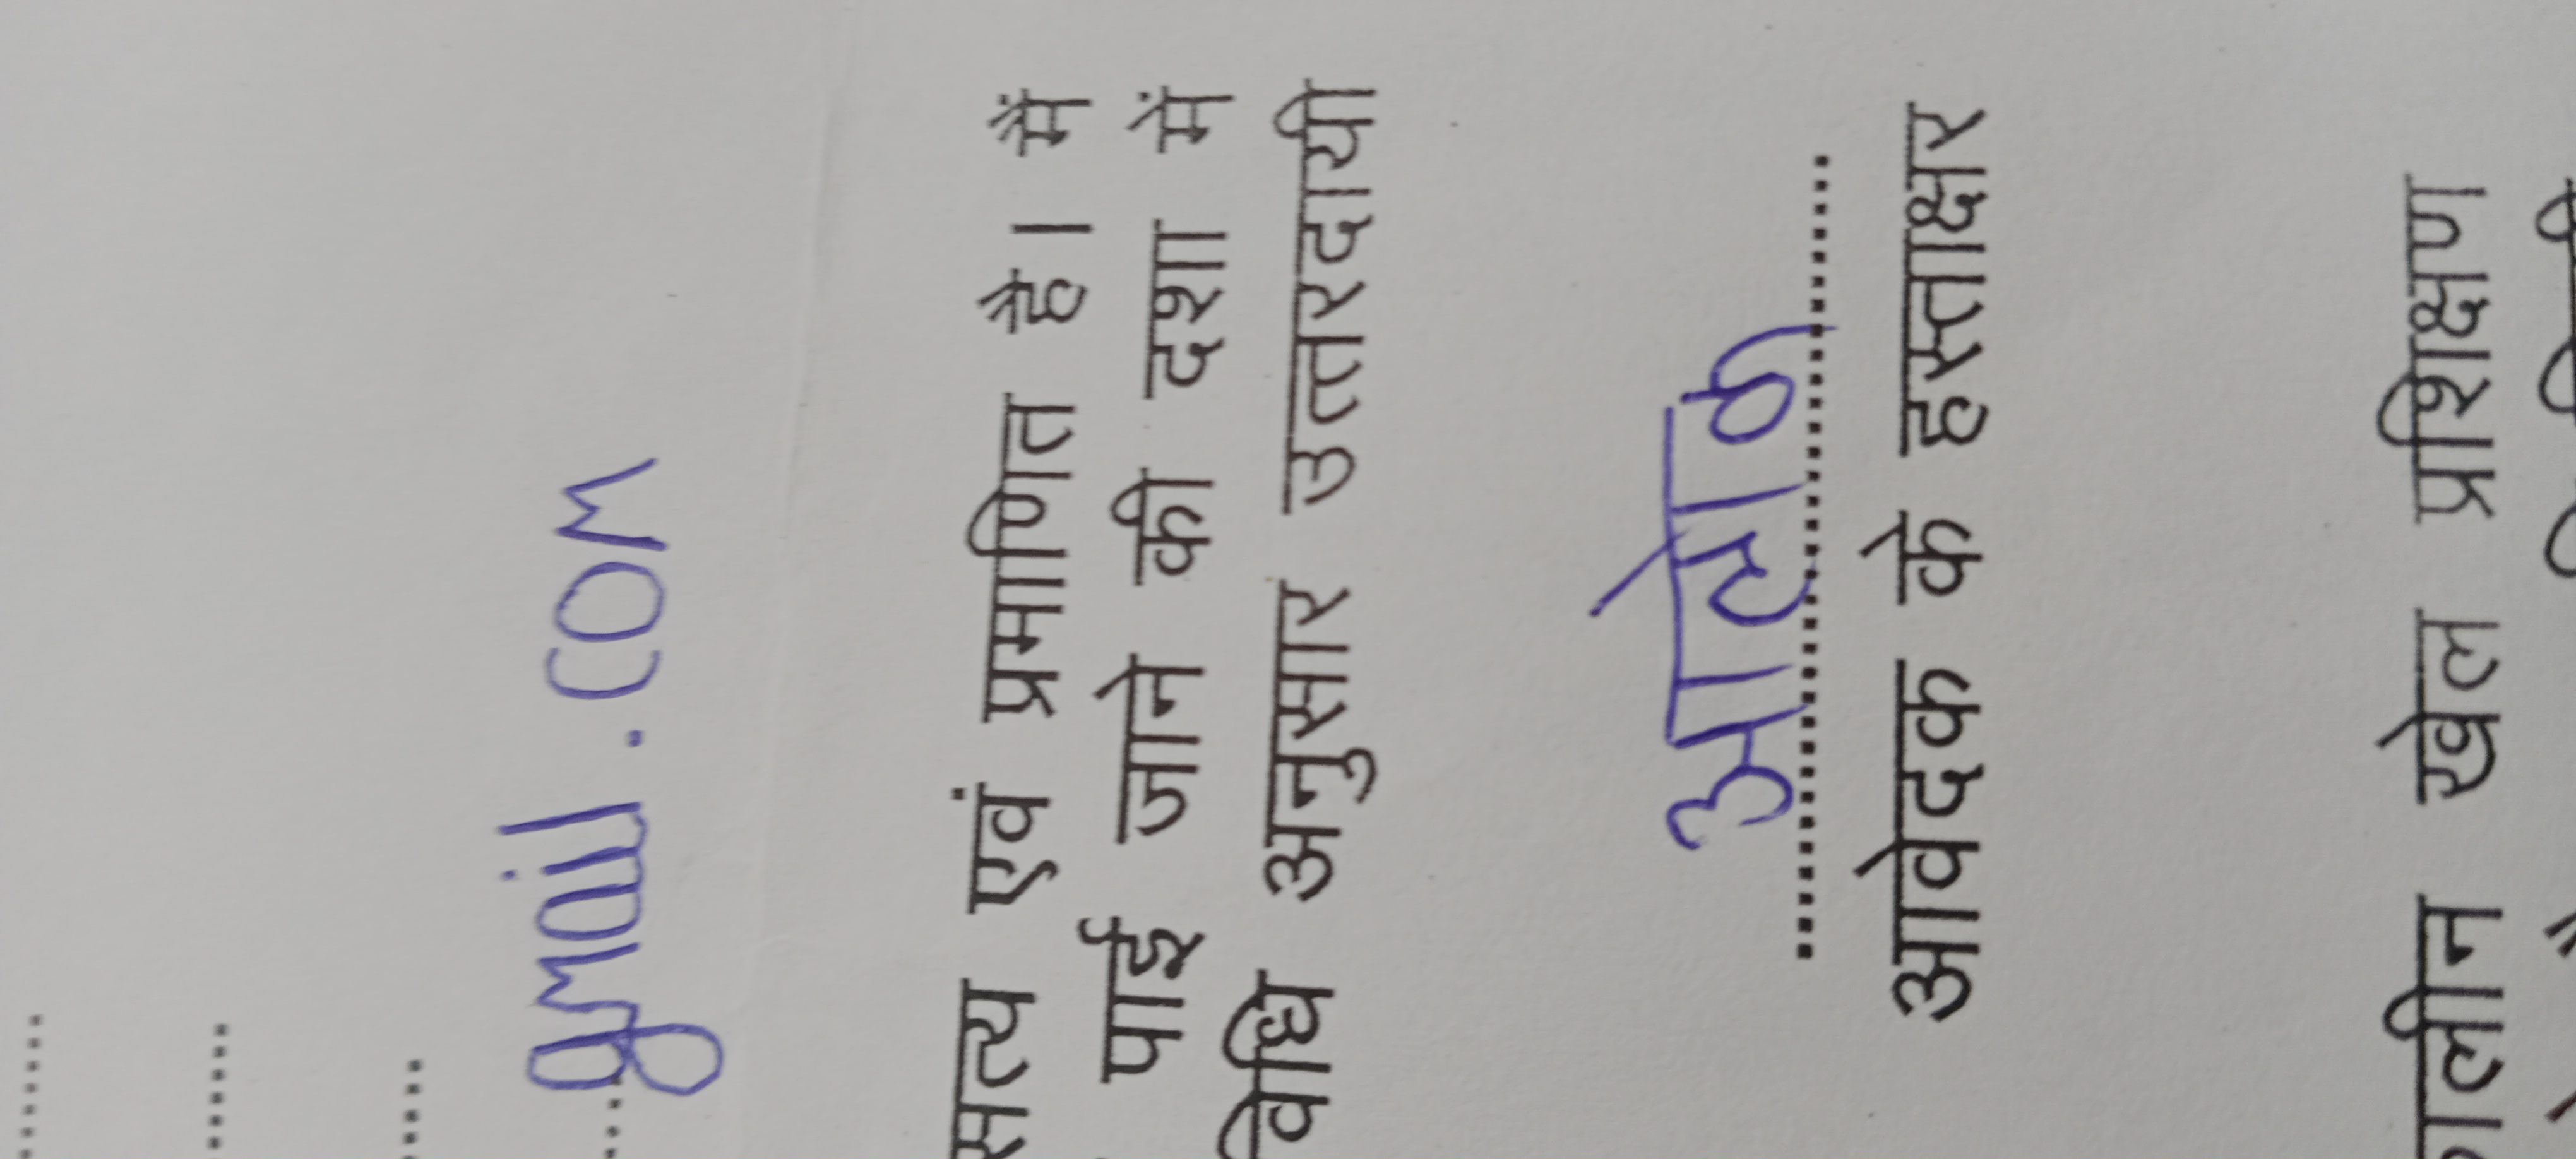 gmail.com
सत्य एवं प्रमाणित है। मैं
पाई जाने की दशा में
विधि अनुसार उत्तरदायी
आलोक
आवेदक के हस्ताक्षर
कालीन खेल प्रशिक्षण